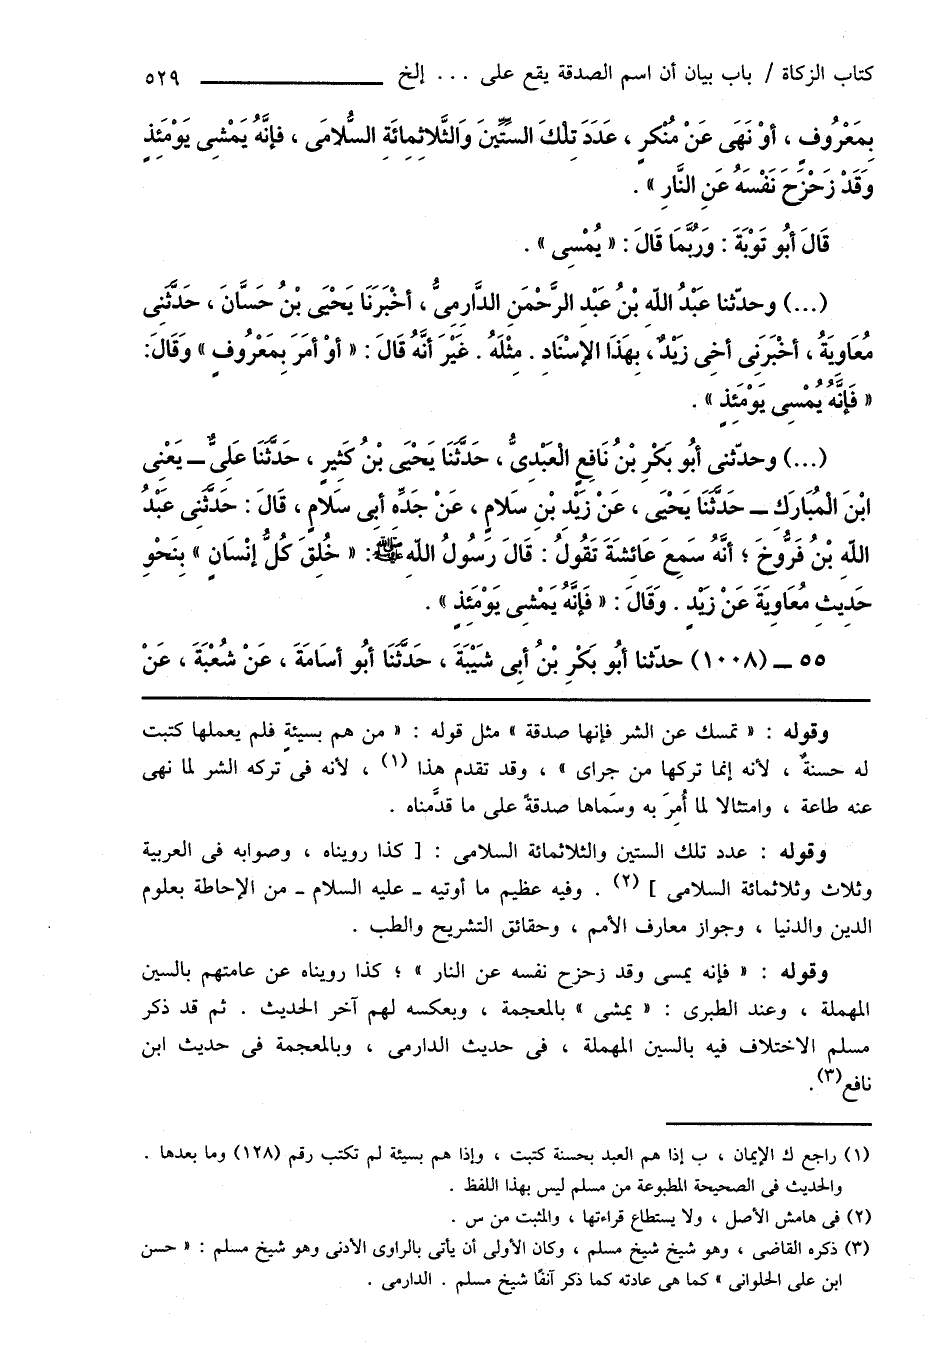 كتاب الزكاة / باب بيان أن اسم الصدقة يقع على ... إلخ ٥٢٩
بِمَعْرُوفٍ ، أَوْ نَهَى عَنْ مُنْكَرٍ ، عَدَدَ تِلْكَ السِّتِّينَ وَالثَّلَاثِمِائَةِ السُّلَامَى ، فَإِنَّهُ يَمْشِى يَوْمَئِذٍ
وَقَدْ زَحْزَحَ نَفْسَهُ عَنِ النَّارِ » .
قَالَ أَبُو تَوْبَةَ : وَرُبَّمَا قَالَ : « يُمْسِى » .
(...) وحدّثنا عَبْدُ اللهِ بْنُ عَبْدِ الرَّحْمَنِ الدَّارِمِىُّ ، أَخْبَرَنَا يَحْيَى بْنُ حَسَّانَ ، حَدَّثَنِى
مُعَاوِيَةُ ، أَخْبَرَنِى أَخِى زَيْدٌ ، بِهَذَا الإِسْنَادِ . مِثْلَهُ . غَيْرَ أَنَّهُ قَالَ : « أَوْ أَمَرَ بِمَعْرُوفٍ » وَقَالَ:
« فَإِنَّهُ يُمْسِى يَوْمَئِذٍ » .
(...) وحدّثنى أَبُو بَكْرِ بْنُ نَافِعٍ الْعَبْدِىُّ ، حَدَّثَنَا يَحْيَى بْنُ كَثِيرٍ ، حَدَّثَنَا عَلِىٌّ ــ يَعْنِى
ابْنَ الْمُبَارَكِ ــ حَدَّثَنَا يَحْيَى ، عَنْ زَيْدِ بْنِ سَلَامٍ ، عَنْ جَدِّهِ أَبِى سَلَامٍ ، قَالَ : حَدَّثَنِى عَبْدُ
اللهِ بْنُ فَرُّوخَ ؛ أَنَّهُ سَمِعَ عَائِشَةَ تَقُولُ : قَالَ رَسُولُ اللهِ ﷺ: « خُلِقَ كُلُّ إِنْسَانٍ » بِنَحْوِ
حَدِيثِ مُعَاوِيَةَ عَنْ زَيْدٍ . وَقَالَ : « فَإِنَّهُ يَمْشِى يَوْمَئِذٍ » .
٥٥ ــ (١٠٠٨) حدّثنا أَبُو بَكْرِ بْنُ أَبِى شَيْبَةَ ، حَدَّثَنَا أَبُو أُسَامَةَ ، عَنْ شُعْبَةَ ، عَنْ
وقوله : « تمسك عن الشر فإنها صدقة » مثل قوله : « من هم بسيئةٍ فلم يعملها كتبت
له حسنةٌ ، لأنه إنما تركها من جراى » ، وقد تقدم هذا (١) ، لأنه فى تركه الشر لما نهى
عنه طاعة ، وامتثالا لما أُمِرَ به وسَماها صدقةً على ما قدَّمناه .
وقوله : عدد تلك الستين والثلاثمائة السلامى : [ كذا رويناه ، وصوابه فى العربية
وثلاث وثلاثمائة السلامى ] (٢) . وفيه عظيم ما أوتيه ـ عليه السلام ـ من الإحاطة بعلوم
الدين والدنيا ، وجواز معارف الأمم ، وحقائق التشريح والطب .
وقوله : « فإنه يمسى وقد زحزح نفسه عن النار » ؛ كذا رويناه عن عامتهم بالسين
المهملة ، وعند الطبرى : « يمشى » بالمعجمة ، وبعكسه لهم آخر الحديث . ثم قد ذكر
مسلم الاختلاف فيه بالسين المهملة ، فى حديث الدارمى ، وبالمعجمة فى حديث ابن
نافع(٣).
(١) راجع ك الإيمان ، ب إذا هم العبد بحسنة كتبت ، وإذا هم بسيئة لم تكتب رقم (١٢٨) وما بعدها .
والحديث فى الصحيحة المطبوعة من مسلم ليس بهذا اللفظ .
(٢) فى هامش الأصل ، ولا يستطاع قراءتها ، والمثبت من س .
(٣) ذكره القاضى ، وهو شيخ شيخ مسلم ، وكان الأولى أن يأتى بالراوى الأدنى وهو شيخ مسلم : « حسن
ابن على الحلوانى » كما هى عادته كما ذكر آنفًا شيخ مسلم . الدارمى .